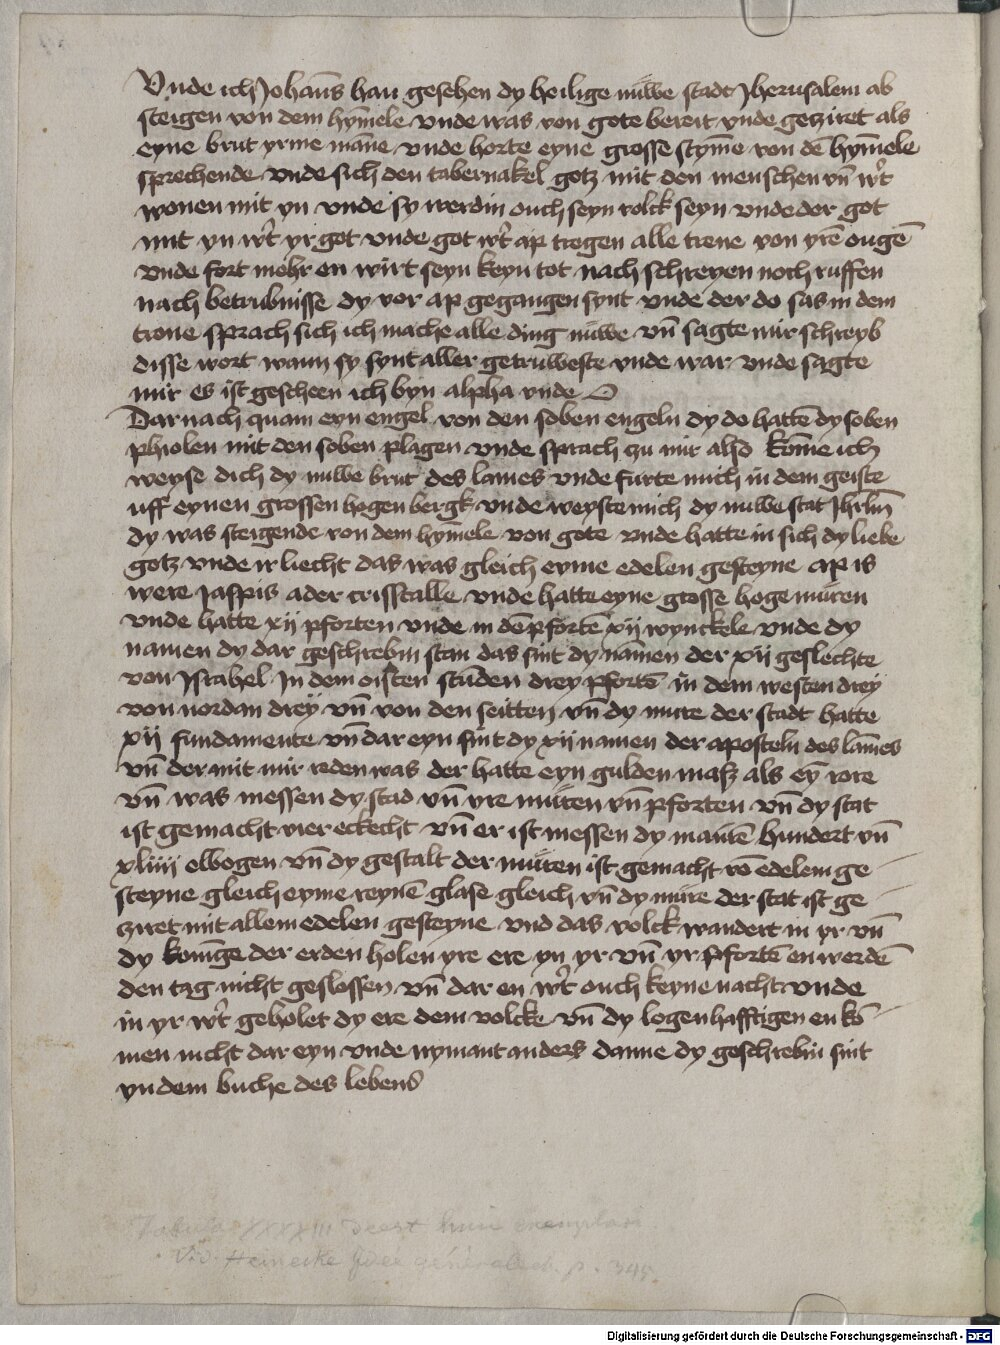 Vnde ich Johans̄ han gesehen dy heilige nuwe stadt Jherusalem ab
steigen von dem hym̄ele vnde was von gote bereit vnde geziret als
eyne brut yrme man̄e vnde horte eyne grosse stym̄e von dē hym̄ele
sprechende vnde sich den tabernakel gotz mit den menschen vn̄ wᵉt
wonen mit yn vnde sy werdin ouch seyn volck seyn vnde der got
mit yn wᵉt yr got vnde got wᵉt ap tregen alle trene von yrē ougē
vnde fort mohr en wirt seyn keyn tot nach schreyen noch ruffen
nach betrubnisse dy vor ap gegangen synt vnde der do sas in dem
trone sprach sich ich mache alle ding nuwe vn̄ sagte mir schreyb
disse wort wann sy synt aller getruweste vnde war vnde sagte
mir es ist gescheen ich byn alpha vnde O
Dar nach quam eyn engel von den soben engeln dy do hattē dy soben
phiolen mit den soben plagen vnde sprach zu mir also kom̄e ich
weyse dich dy nuwe brut des lames vnde furte mich in dem geiste
uff eynen grossen hogen bergk vnde weyste mich dy nuwe stat Jhrlm̄
dy was steigende von dem hym̄ele von gote vnde hatte in sich dy liebe
gotz vnde ir liecht das was gleich eyme edelen gesteyne ap is
were Jaspis ader cristalle vnde hatte eyne grosse hoge muren
vnde hatte xij pforten vnde in dē pfortē xij wynckele vnde dy
namen dy dar geschrebin stan das sint dy namen der xij geslechte
von Israhel In dem oisten stunden drey pfortē in dem westen drey
von nordan drey vn̄ von den seitten vn̄ dy mure der stadt hatte
xij fundamente vn̄ dar eyn sint dy xij namen der aposteln des lam̄es
vn̄ der mit mir reden was der hatte eyn gulden masz als eȳ rore
vn̄ was messen dy stad vn̄ yre muren vn̄ pforten vn̄ dy stat
ist gemacht vier eckecht vn̄ er ist messen dy maurē hundert vn̄
xliiij elbogen vn̄ dy gestalt der muren ist gemacht vō edelem ge
steyne gleich eyme reynē glase gleich vn̄ dy mure der stat ist ge
ziret mit allem edelen gesteyne vnd das volck wandert in yr vn̄
dy konīge der erden holen yre ere yn yr vn̄ yr pfortē en werdē
den tag nicht geslossen vn̄ dar en wᵉt ouch keyne nacht vnde
in yr wᵉt geholet dy ere dem volcke vn̄ dy logenhafftigen en kō
men nicht dar eyn vnde nymant anders danne dy geschrebin sint
yn dem buche des lebens
Tabula XXXXIII deest huic exemplari.
Vid. Heinecke Idée générale p. 345.